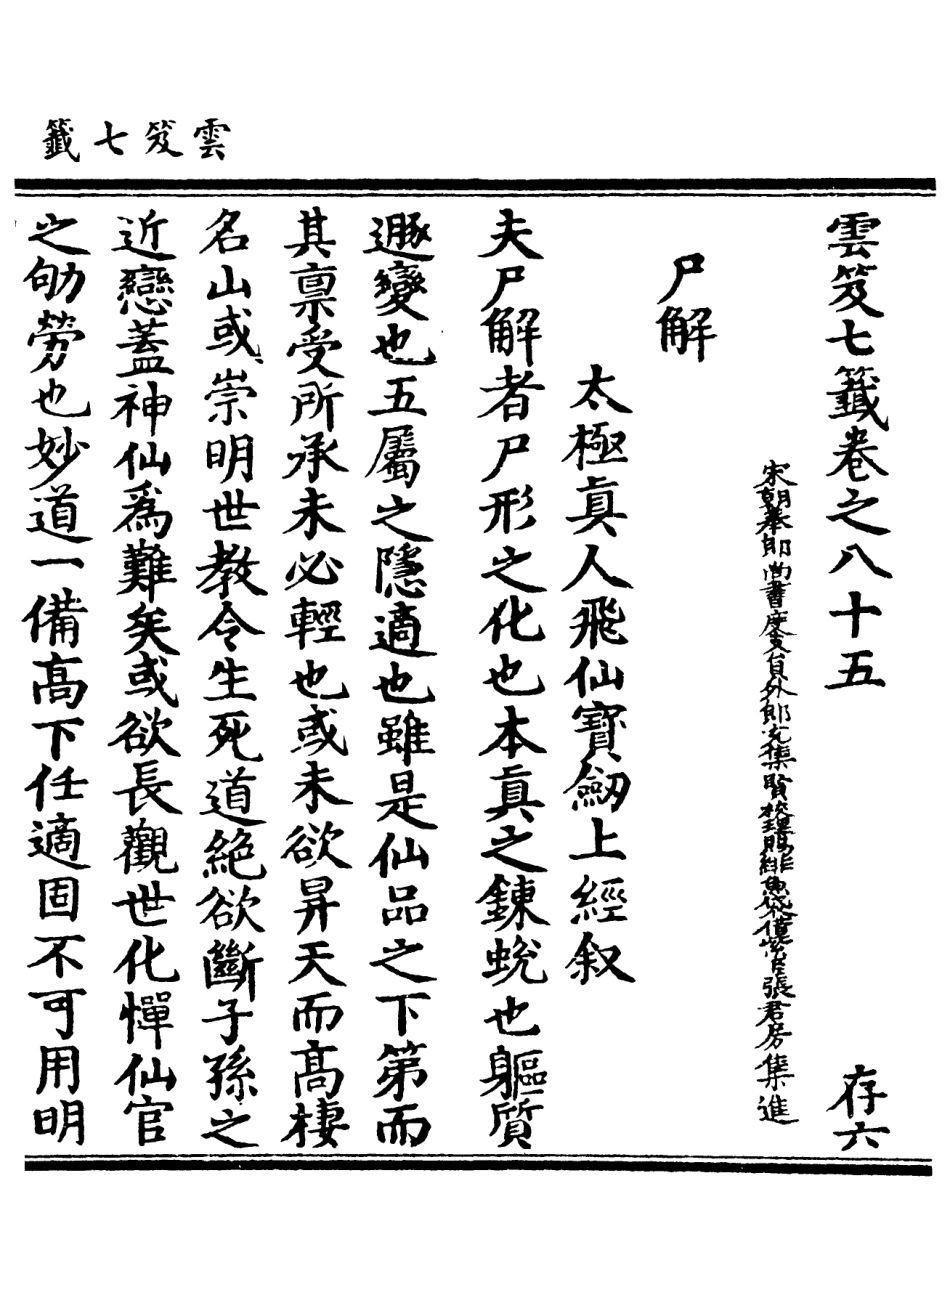 雲笈七籤
雲笈七籤卷之八十五 存六
宋朝奉郎尚書度支員外郎充集賢校理賜緋魚袋借紫臣張君房集進
尸解
太極眞人飛仙寶劒上經叙
夫尸解者尸形之化也本眞之鍊蛻也軀質
遯變也五屬之隱適也雖是仙品之下第而
其禀受所承未必輕也或未欲昇天而髙棲
名山或崇明世教令生死道絕欲斷子孫之
近戀蓋神仙爲難矣或欲長觀世化憚仙官
之劬勞也妙道一備髙下任適固不可用明